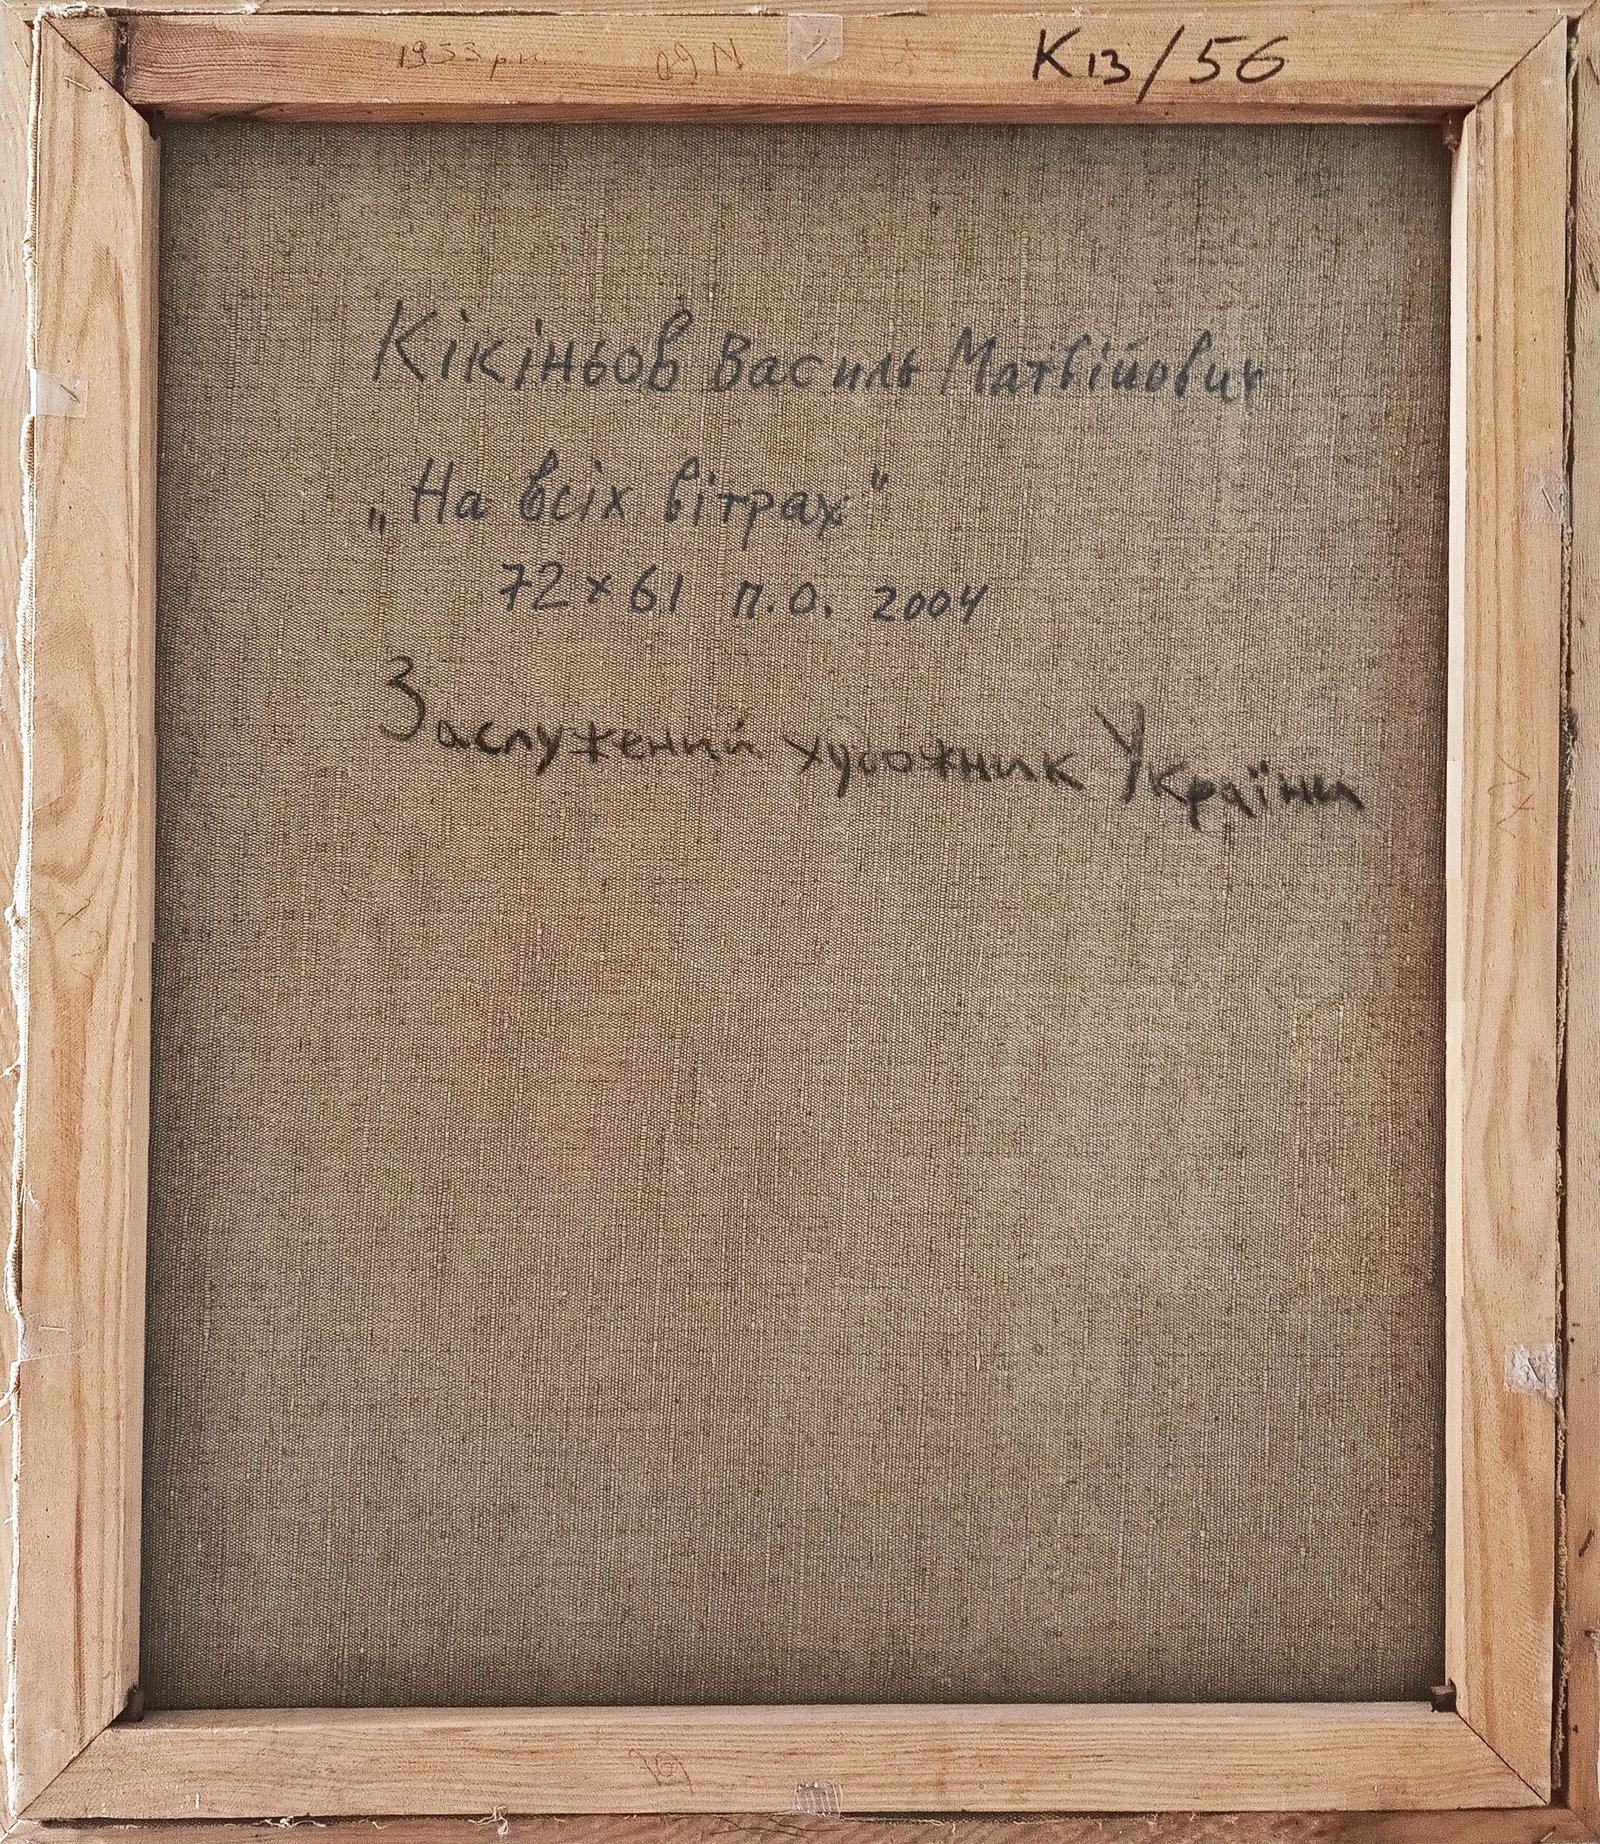 К13/56
Кікіньов Василь Матвійович
„На всіх вітрах"
72×61 п.о. 2004
Заслужений художник України